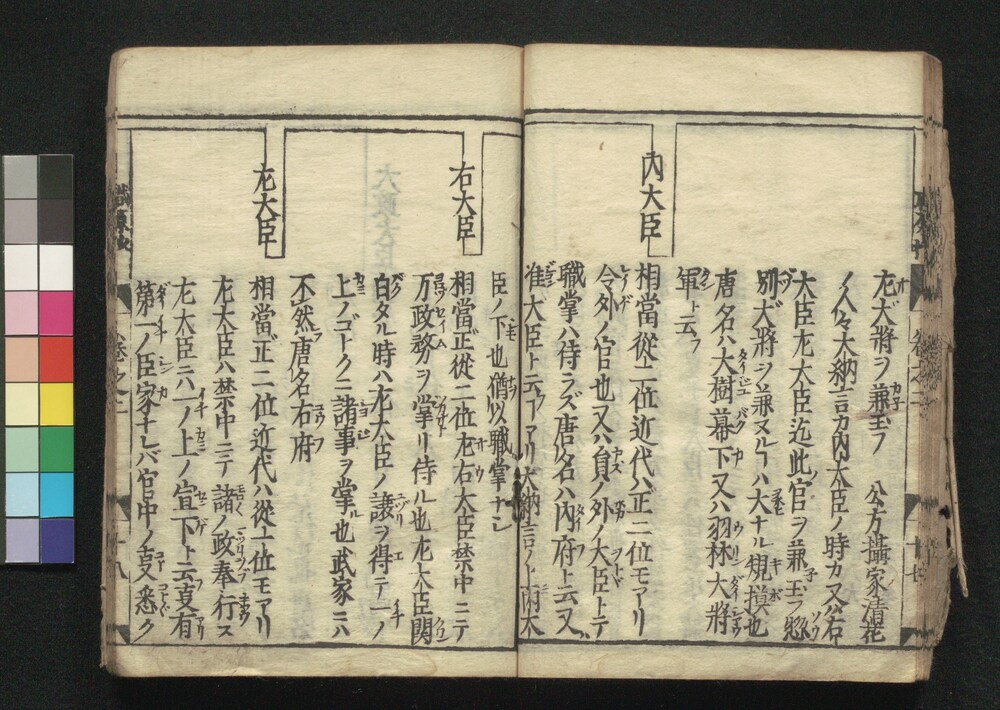 左大將ヲ兼玉フ 公方攝家清花
ノ人々大納言カ内大臣ノ時カ又右
大臣左大臣迄此官ヲ兼玉フ惣
別大將ヲ兼ヌルヿハ大ナル規摸也
唐名ハ大樹幕下又ハ羽林大將
軍ト云フ
内大臣
相當從二位近代ハ正二位モアリ
令外ノ官也又ハ員ノ外ノ大臣トテ
職掌ハ待ラズ唐名ハ内府ト云又
准大臣ト云アリ大納言ノ上兩大
臣ノ下也猶以職掌ナシ
右大臣
相當正從二位左右大臣禁中ニテ
万政務ヲ掌リ侍ル也左大臣関
白タル時ハ左大臣ノ譲ヲ得テ一ノ
上ノゴトクニ諸事ヲ掌ル也武家ニハ
不然唐名右府
左大臣
相當正二位近代ハ從一位モアリ
左大臣ハ禁中ニテ諸ノ政奉行ス
左大臣ニハ一ノ上ノ宣下ト云叓有
第一ノ臣家ナレバ官中ノ叓悉ク